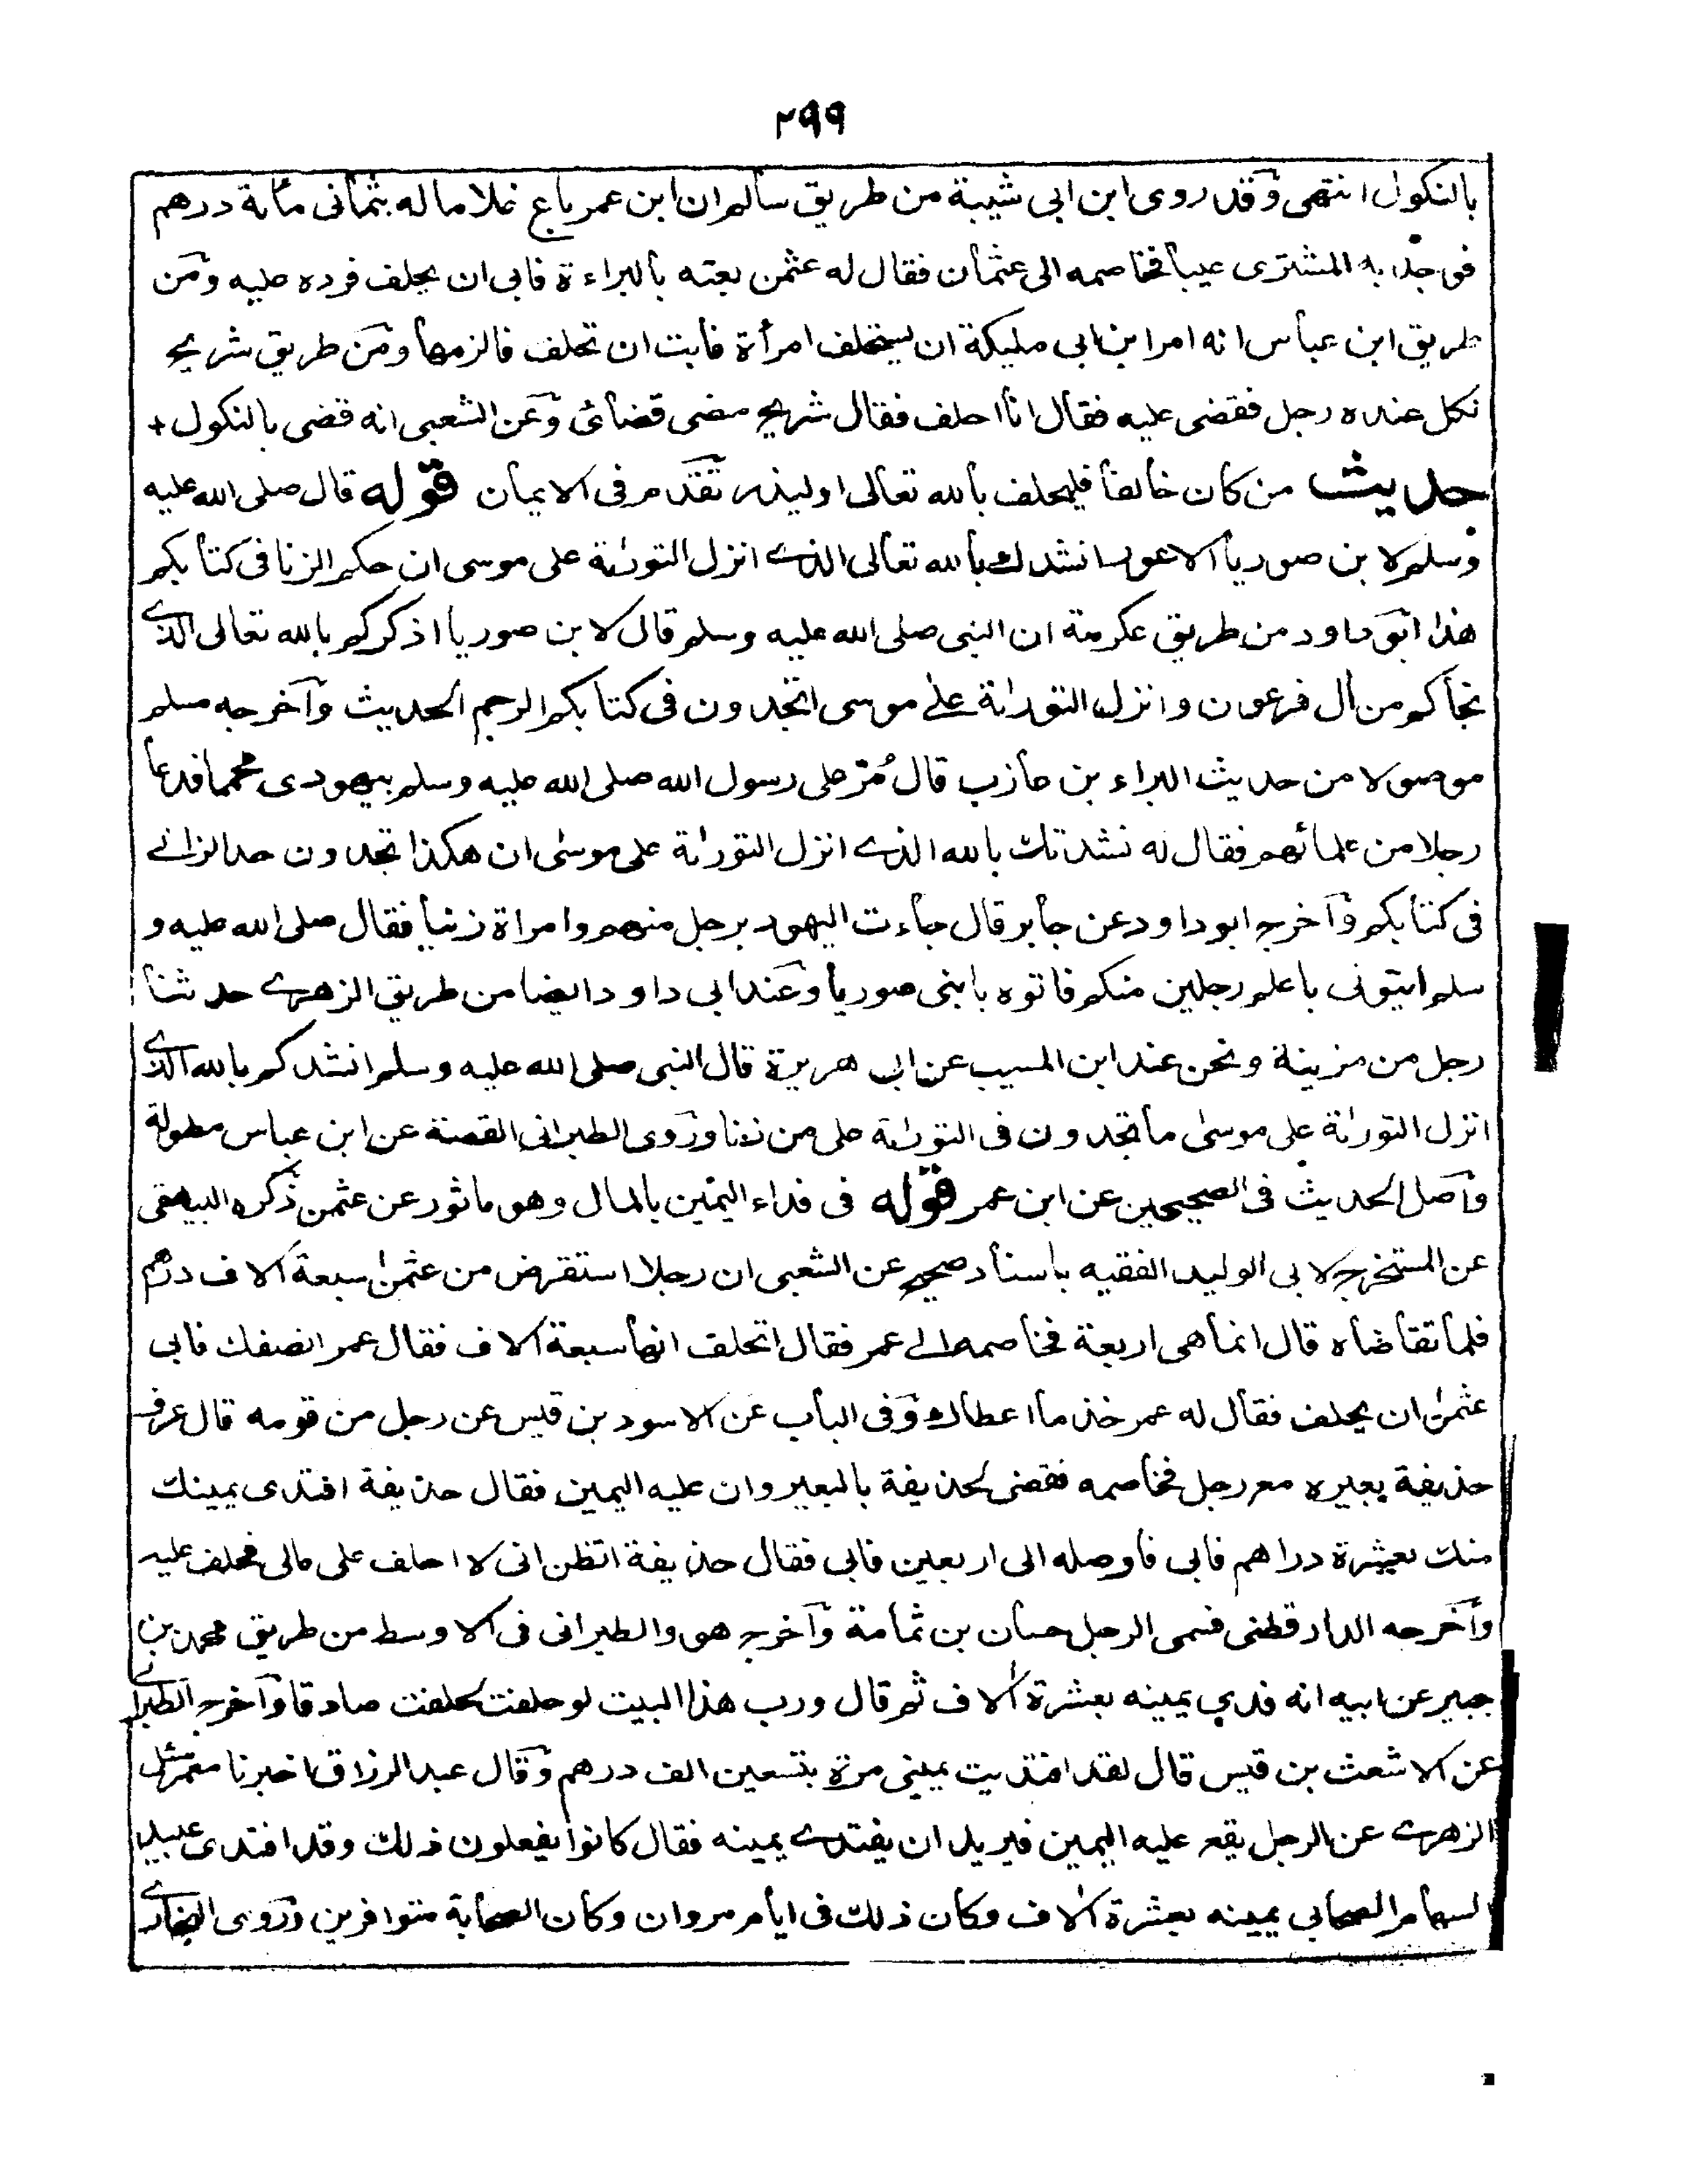 ٢٩٩
بالنكول انتهى وقد روى ابن ابى شيبة من طريق سالم ان ابن عمر باع غلاما له بثمانى مائة درهم
فوجد به المشترى عيبا فخاصمه الى عثمان فقال له عثمن بعته بالبراءة فابى ان يحلف فرده عليه ومن
طريق ابن عباس انه امر ابن ابى مليكة ان يستحلف امرأة فابت ان تحلف فالزمها ومن طريق شريح
نكل عنده رجل فقضى عليه فقال انا احلف فقال شريح مضى قضائى وعن الشعبى انه قضى بالنكول +
حديث من كان حالفا فليحلف بالله تعالى او ليذر تقدم فى الايمان قوله قال صلى الله عليه
وسلم لابن صوريا الاعور انشدك بالله تعالى الذے انزل التورىٰة على موسى ان حكم الزنا فى كتابكم
هذا ابو داود من طريق عكرمة ان النبى صلى الله عليه وسلم قال لابن صوريا اذكركم بالله تعالى الذے
نجاكم من آل فرعون وانزل التورىٰة علے موسى اتجدون فى كتابكم الرجم الحديث وآخرجه مسلم
موصولا من حديث البراء بن عازب قال مُرّ على رسول الله صلى الله عليه وسلم بيهودى محمما فدعا
رجلا من علمائهم فقال له نشدتك بالله الذے انزل التورىٰة على موسىٰ ان هكذا تجدون حد الزانے
فى كتابكم وآخرجه ابو داود عن جابر قال جاءت اليهود برجل منهم وامراة زنيا فقال صلى الله عليه و
سلم ايتونى باعلم رجلين منكم فاتوه بابنى صوريا وعند ابى داود ايضا من طريق الزهرے حدثنا
رجل من مزينة ونحن عند ابن المسيب عن ابى هريرة قال النبى صلى الله عليه وسلم انشدكم بالله الذے
انزل التورىٰة على موسىٰ ما تجدون فى التورىٰة على من زنا وروى الطبرانى القصة عن ابن عباس مطولة
وآصل الحديث فى الصحيحين عن ابن عمر قوله فى فداء اليمين بالمال وهو ماثور عن عثمن ذكره البيهقى
عن المستخرج لابى الوليد الفقيه باسناد صحيح عن الشعبى ان رجلا استقرض من عثمن سبعة آلاف درهم
فلما تقاضاه قال انما هى اربعة فخاصمه الے عمر فقال اتحلف انها سبعة آلاف فقال عمر انصفك فابى
عثمن ان يحلف فقال له عمر خذ ما اعطاك وفى الباب عن الاسود بن قيس عن رجل من قومه قال عرف
حذيفة بعيره مع رجل فخاصمه فقضى لحذيفة بالبعير وان عليه اليمين فقال حذيفة افتدى يمينك
منك بعشرة دراهم فابى فاوصله الى اربعين فابى فقال حذيفة اتظن انى لا احلف على مالى فحلف عليه
وآخرجه الدارقطنى فسمى الرجل حسان بن ثمامة وآخرجه هو والطبرانى فى الاوسط من طريق محمد بن
جبير عن ابيه انه فدى يمينه بعشرة آلاف ثم قال ورب هذا البيت لو حلفت لحلفت صادقا وآخرجه الطبرانے
عن الاشعث بن قيس قال لقد افتديت يمينى مرة بتسعين الف درهم وقال عبد الرزاق اخبرنا معمر سئل
الزهرے عن الرجل يقع عليه اليمين فيريد ان يفتدے يمينه فقال كانوا يفعلون ذلك وقد افتدى عبيد
السهام الصحابى يمينه بعشرة آلاف وكان ذلك فى ايام مروان وكان الصحابة متوافرين وروى البخارے